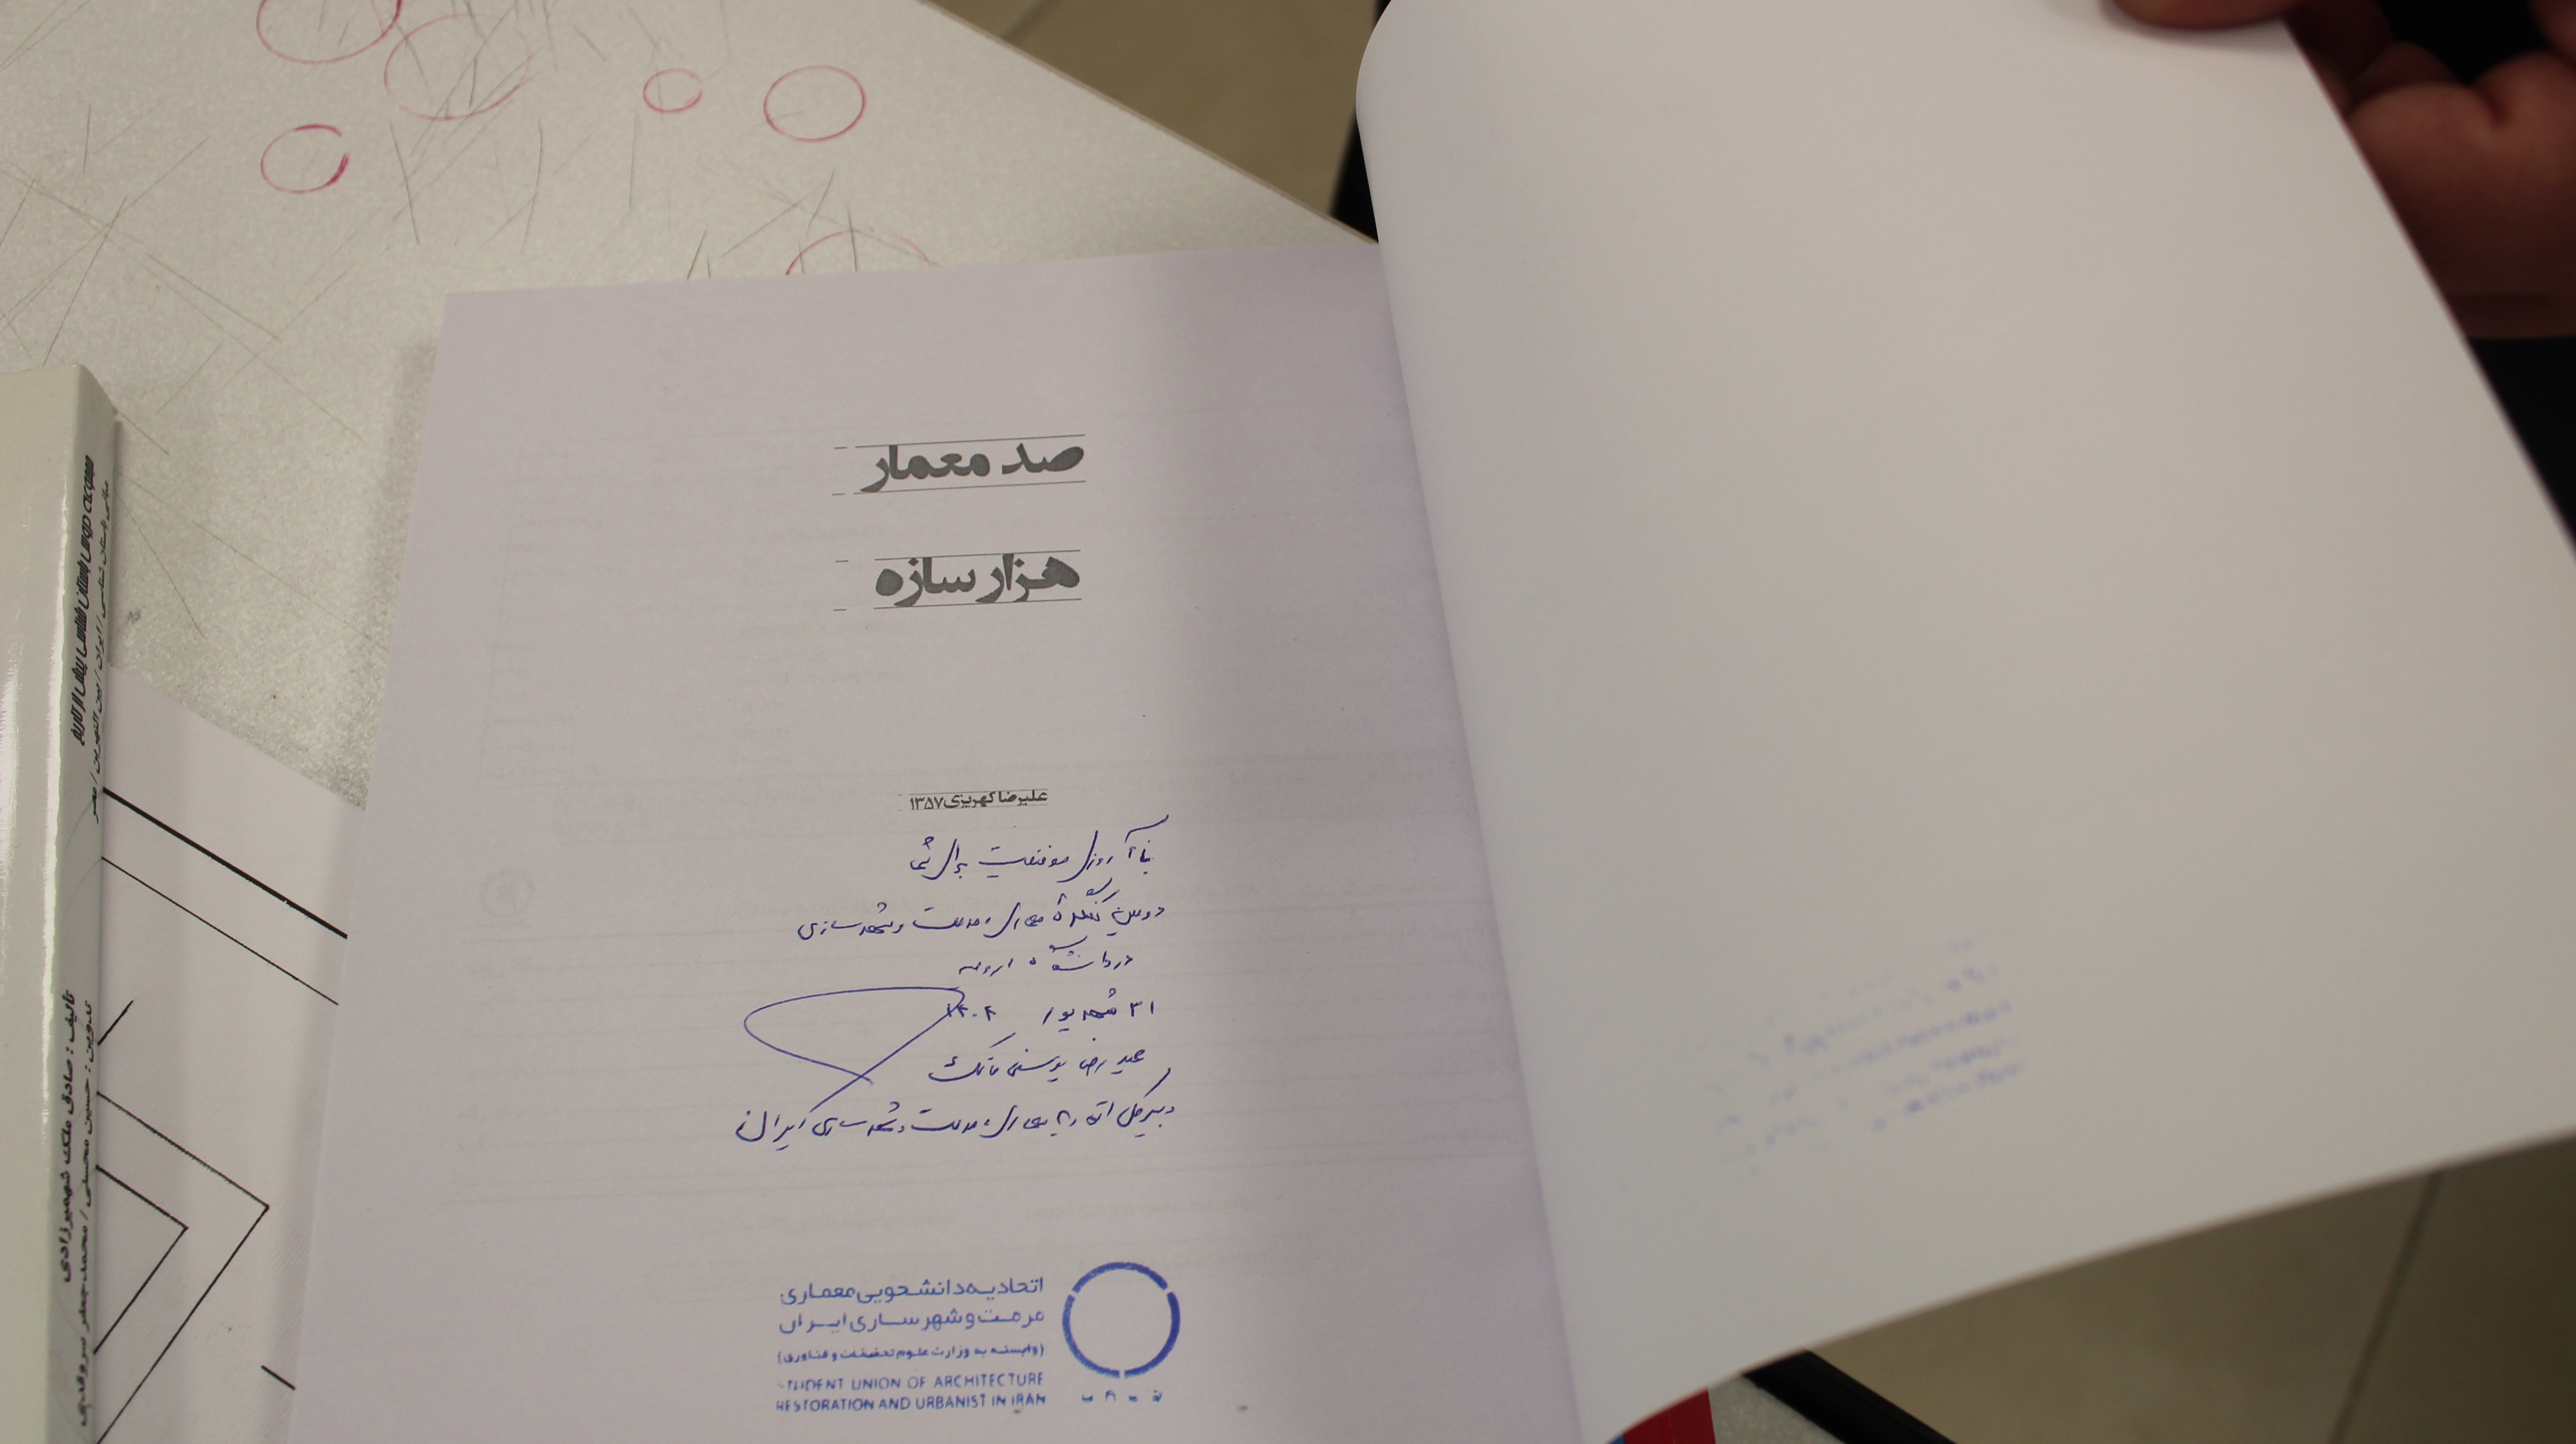 صد معمار
هزار سازه
علیرضا کهریزی ۱۳۵۷
با آرزوی موفقیت برای شما
دومین کنگره معماری، مرمت و شهرسازی
در دانشگاه ارومیه
۳۱ شهریور ۱۴۰۲
یوسفی
دبیرکل اتحادیه معماری، مرمت و شهرسازی ایران
اتحادیه دانشجویی معماری
مرمت و شهرسازی ایران
(وابسته به وزارت علوم تحقیقات و فناوری)
STUDENT UNION OF ARCHITECTURE
RESTORATION AND URBANIST IN IRAN
مبانی باستان شناسی / ایران / بین النهرین / مصر
تالیف: صادق ملک شهمیرزادی
تدوین: حسین محسنی / محمدجعفر سروقدی